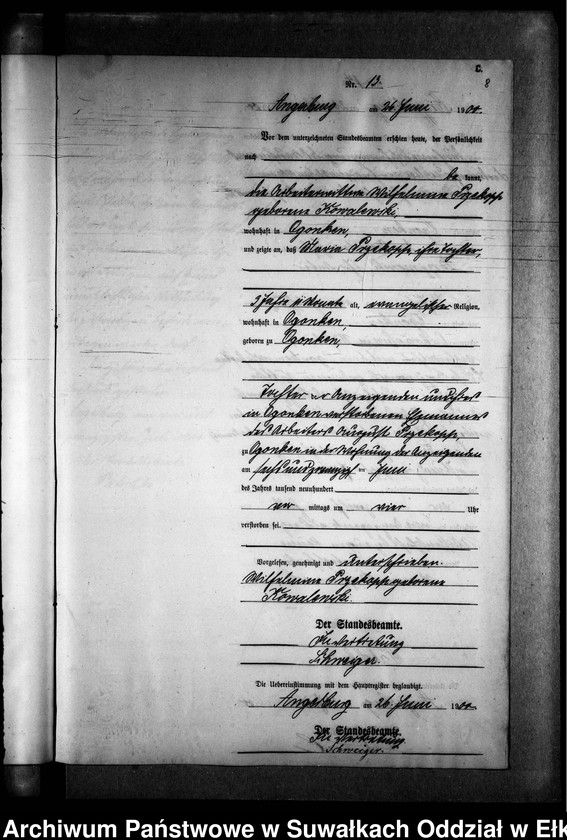 C.
8
Nr. 13.
Angerburg am 26. Juni 1900.
Vor dem unterzeichneten Standesbeamten erschien heute, der Persönlichkeit
nach
be kannt,
die Arbeiterwittwe Wilhelmine Przekopp
geborene Kowalewski,
wohnhaft in Ogonken,
und zeigte an, daß Maria Przekopp, ihre Tochter,
3 Jahre 11 Monate alt, evangelischer Religion,
wohnhaft in Ogonken,
geboren zu Ogonken,
Tochter der Anzeigenden und ihres
in Ogonken verstorbenen Ehemannes
des Arbeiters August Przekopp,
zu Ogonken in der Wohnung der Anzeigenden
am sechsundzwanzigsten Juni
des Jahres tausend neunhundert
vor mittags um vier Uhr
verstorben sei.
Vorgelesen, genehmigt und unterschrieben.
Wilhelmine Przekopp geborene
Kowalewski.
Der Standesbeamte.
In Vertretung
Schweiger.
Die Uebereinstimmung mit dem Hauptregister beglaubigt.
Angerburg am 26. Juni 1900.
Der Standesbeamte.
In Vertretung
Schweiger.
Archiwum Państwowe w Suwałkach Oddział w Ełk